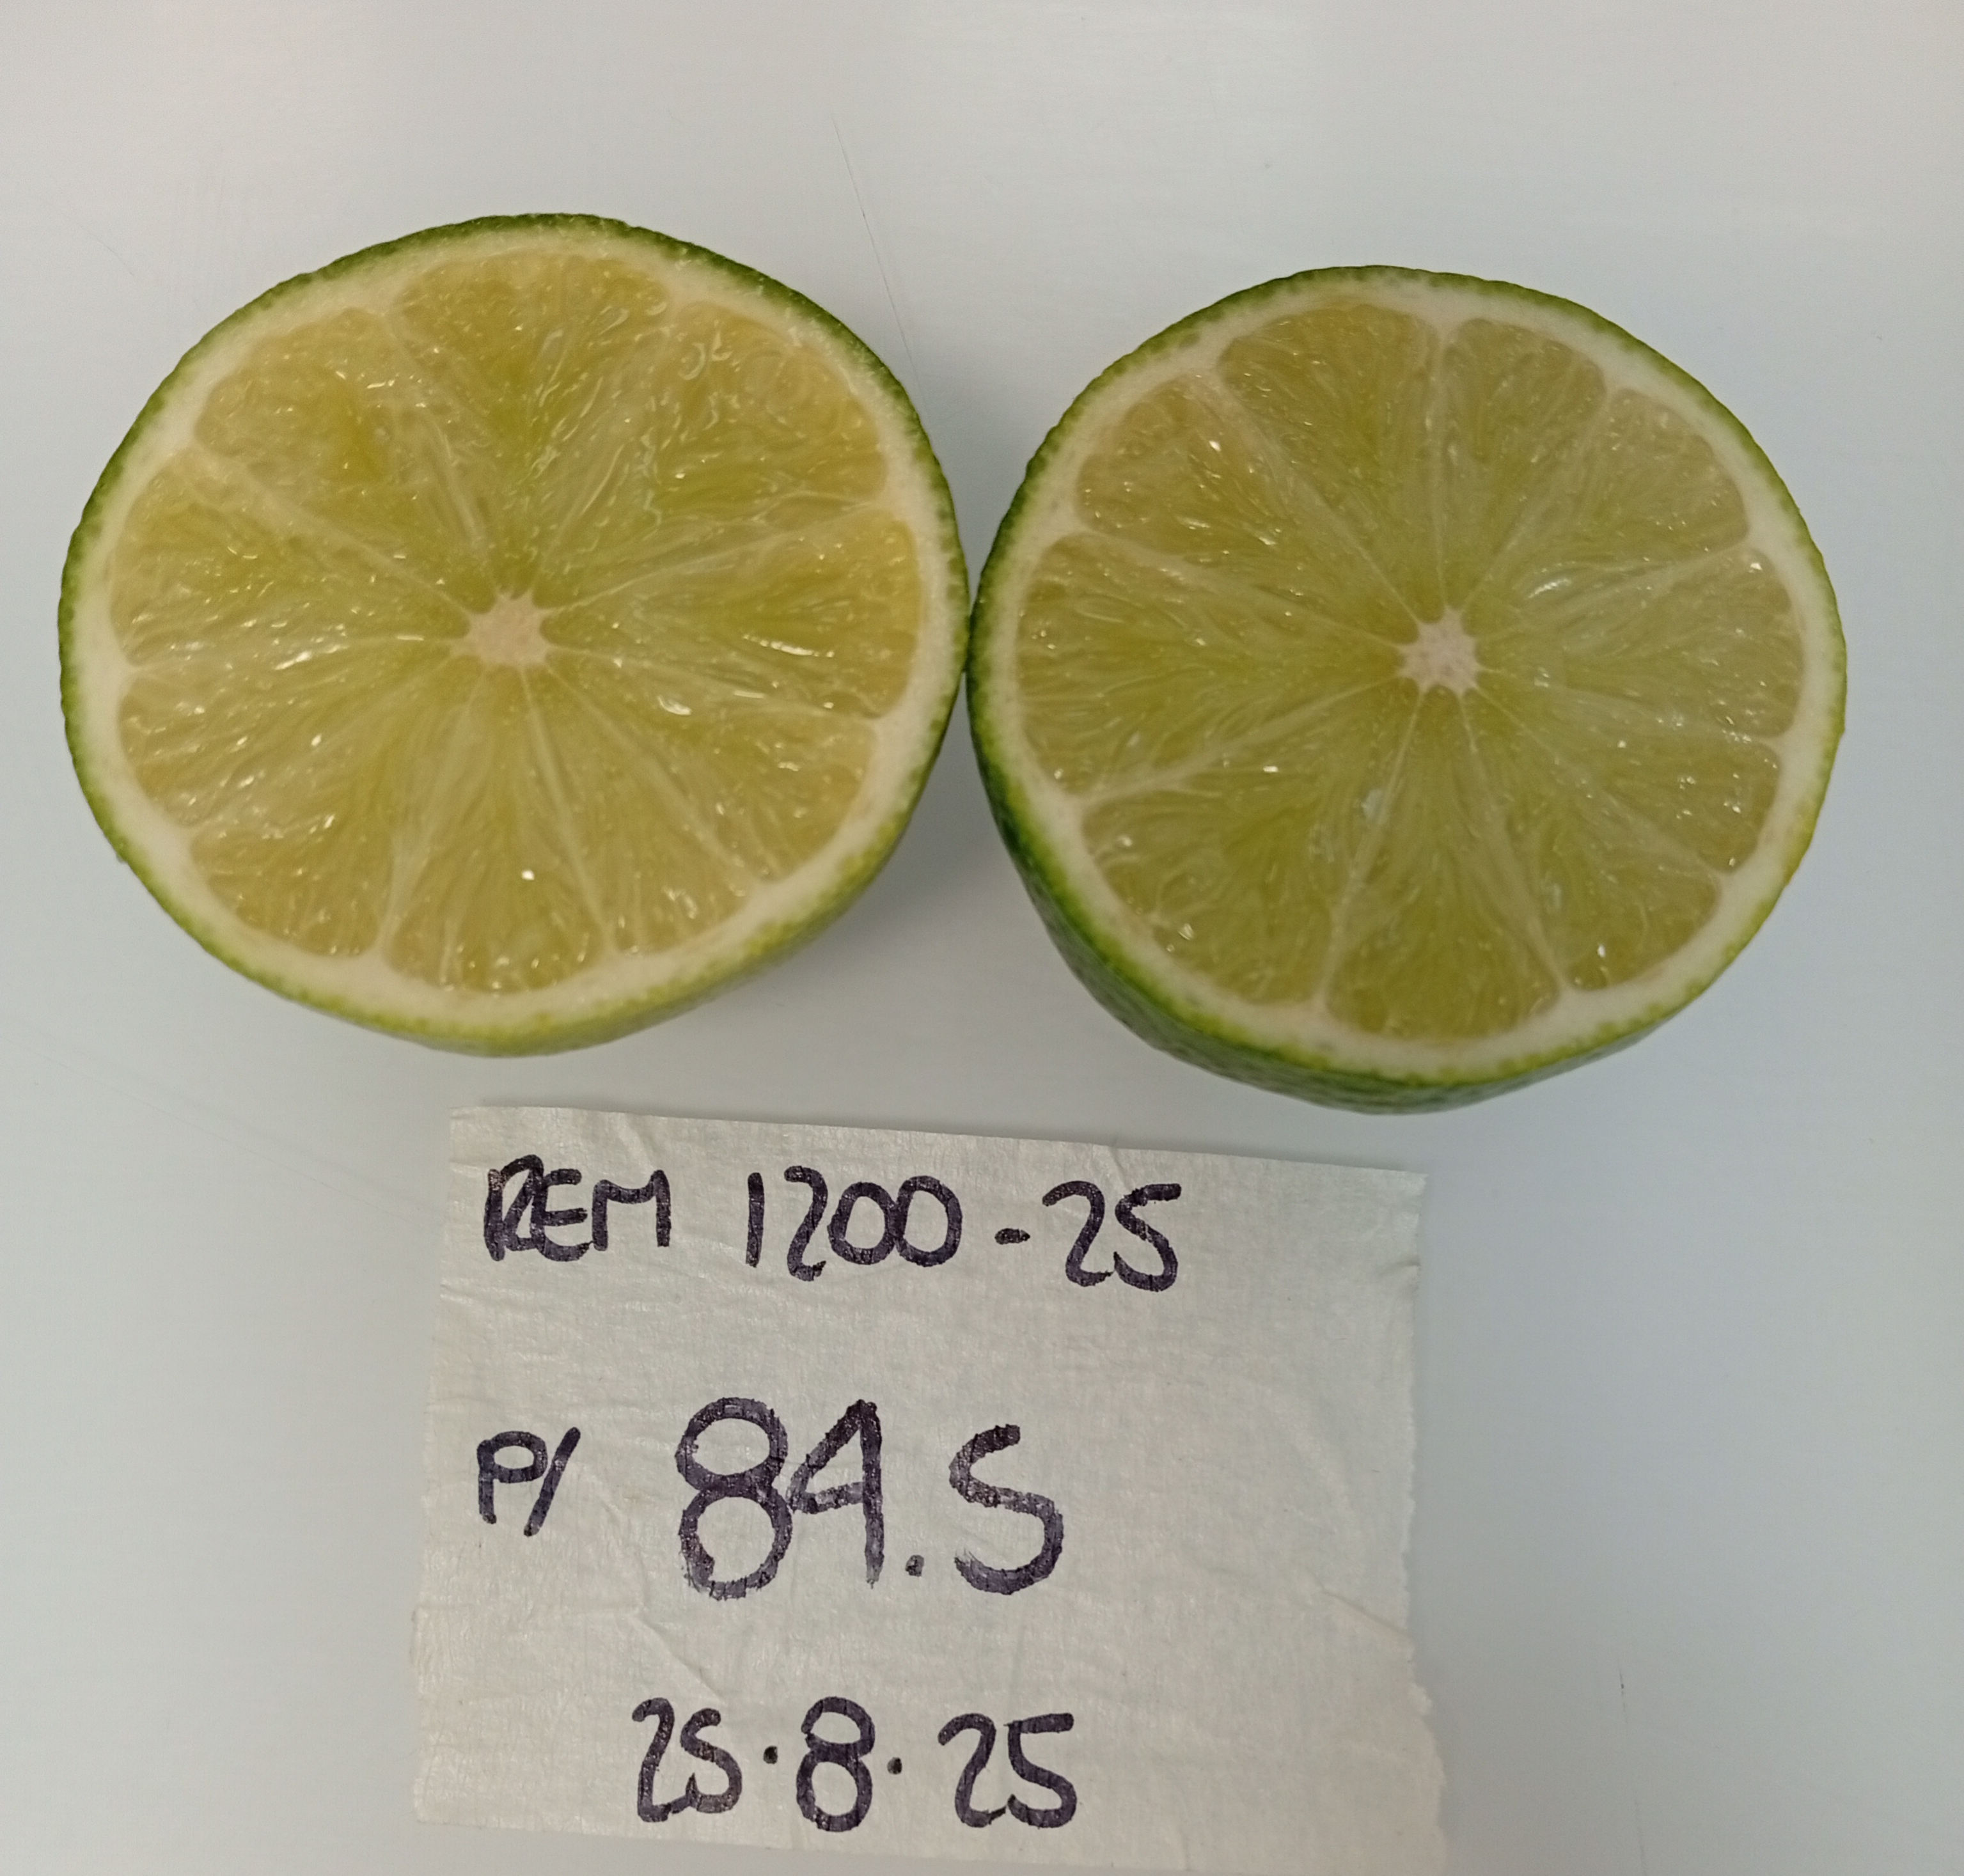 REM 1200-25
P/ 84.5
25.8.25